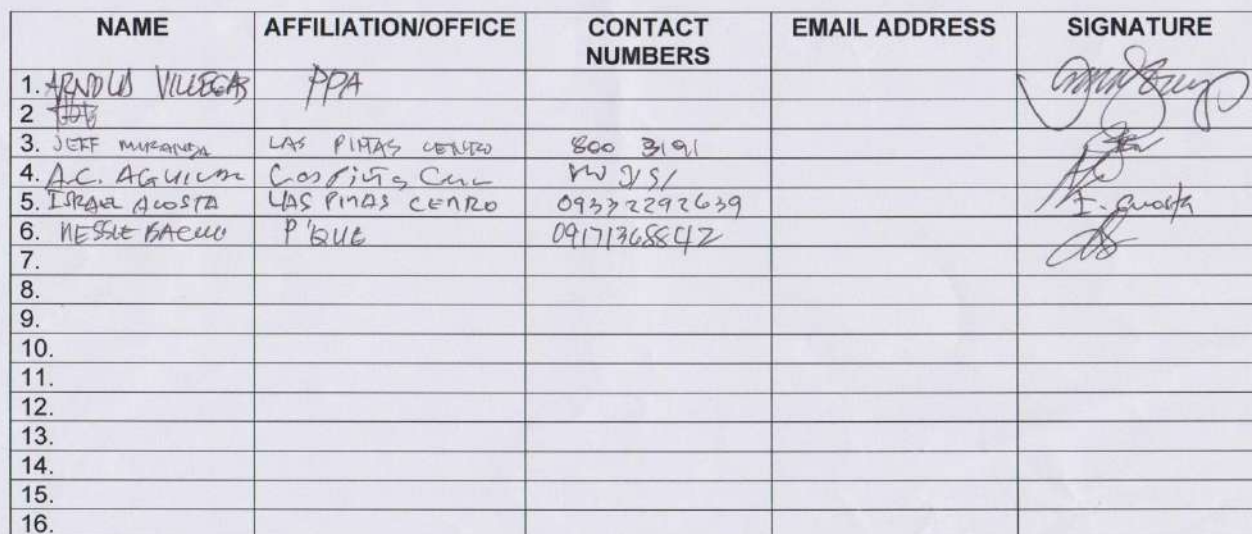 NAME AFFILIATION/OFFICE CONTACT NUMBERS EMAIL ADDRESS SIGNATURE
1. ARNOLD VILLEGAS PPA
2
3. JEFF MIRANDA LAS PIÑAS CENTRO 800 3191
4. A.C. AGUILAR Las Piñas
5. ISRAEL ACOSTA LAS PIÑAS CENTRO 09332292639 I. Acosta
6. P'QUE 09171368842
7.
8.
9.
10.
11.
12.
13.
14.
15.
16.